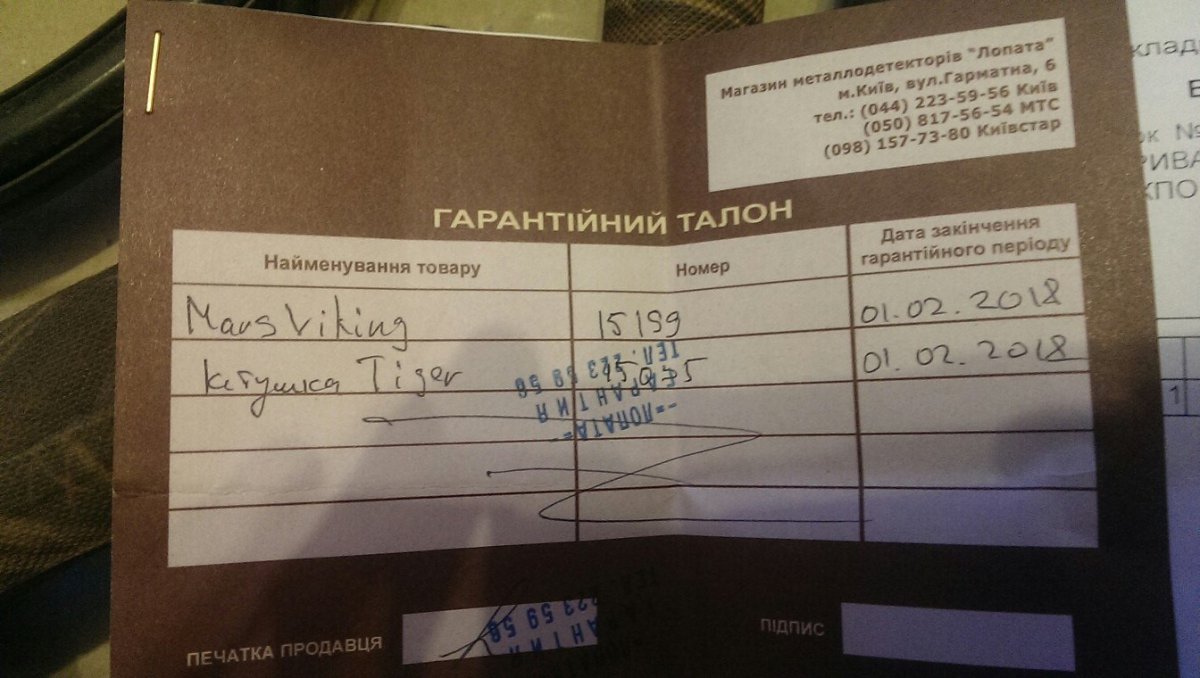 Магазин металлодетекторів "Лопата"
м.Київ, вул.Гарматна, 6
тел.: (044) 223-59-56 Київ
(050) 817-56-54 МТС
(098) 157-73-80 Київстар
ГАРАНТІЙНИЙ ТАЛОН
Найменування товару Номер Дата закінчення гарантійного періоду
Mars Viking 15199 01.02.2018
катушка Tiger 01.02.2018
-=ЛОПАТА=-
ГАРАНТИЯ
ТЕЛ. 223 59 56
ПЕЧАТКА ПРОДАВЦЯ
223 59 56
ПІДПИС
клад
№
РИВА
КПО
1